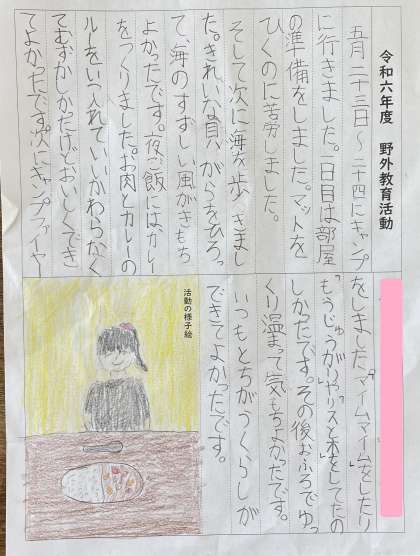 令和六年度 野外教育活動
五月二十三日〜二十四にキャンプ
に行きました。一日目は部屋
の準備をしました。マットを
ひくのに苦労しました。
そして次に海を歩きまし
た。きれいな貝がらをひろっ
て、海のすずしい風がきもち
よかったです。夜ご飯にはカレー
をつくりました。お肉しカレーの
ルーをいつ入れていいかわらなく
てむずかしかったけどおいしくでき
てよかったです。次にキャンプファイヤー
をしました。「マイムマイム」をしたり
「もうじゅうがり」や「リスと木」をしてたの
しかったです。その後おふろでゆっ
くり温まって気もちよかったです。
いつもとちがうくらしが
できてよかったです。
活動の様子絵